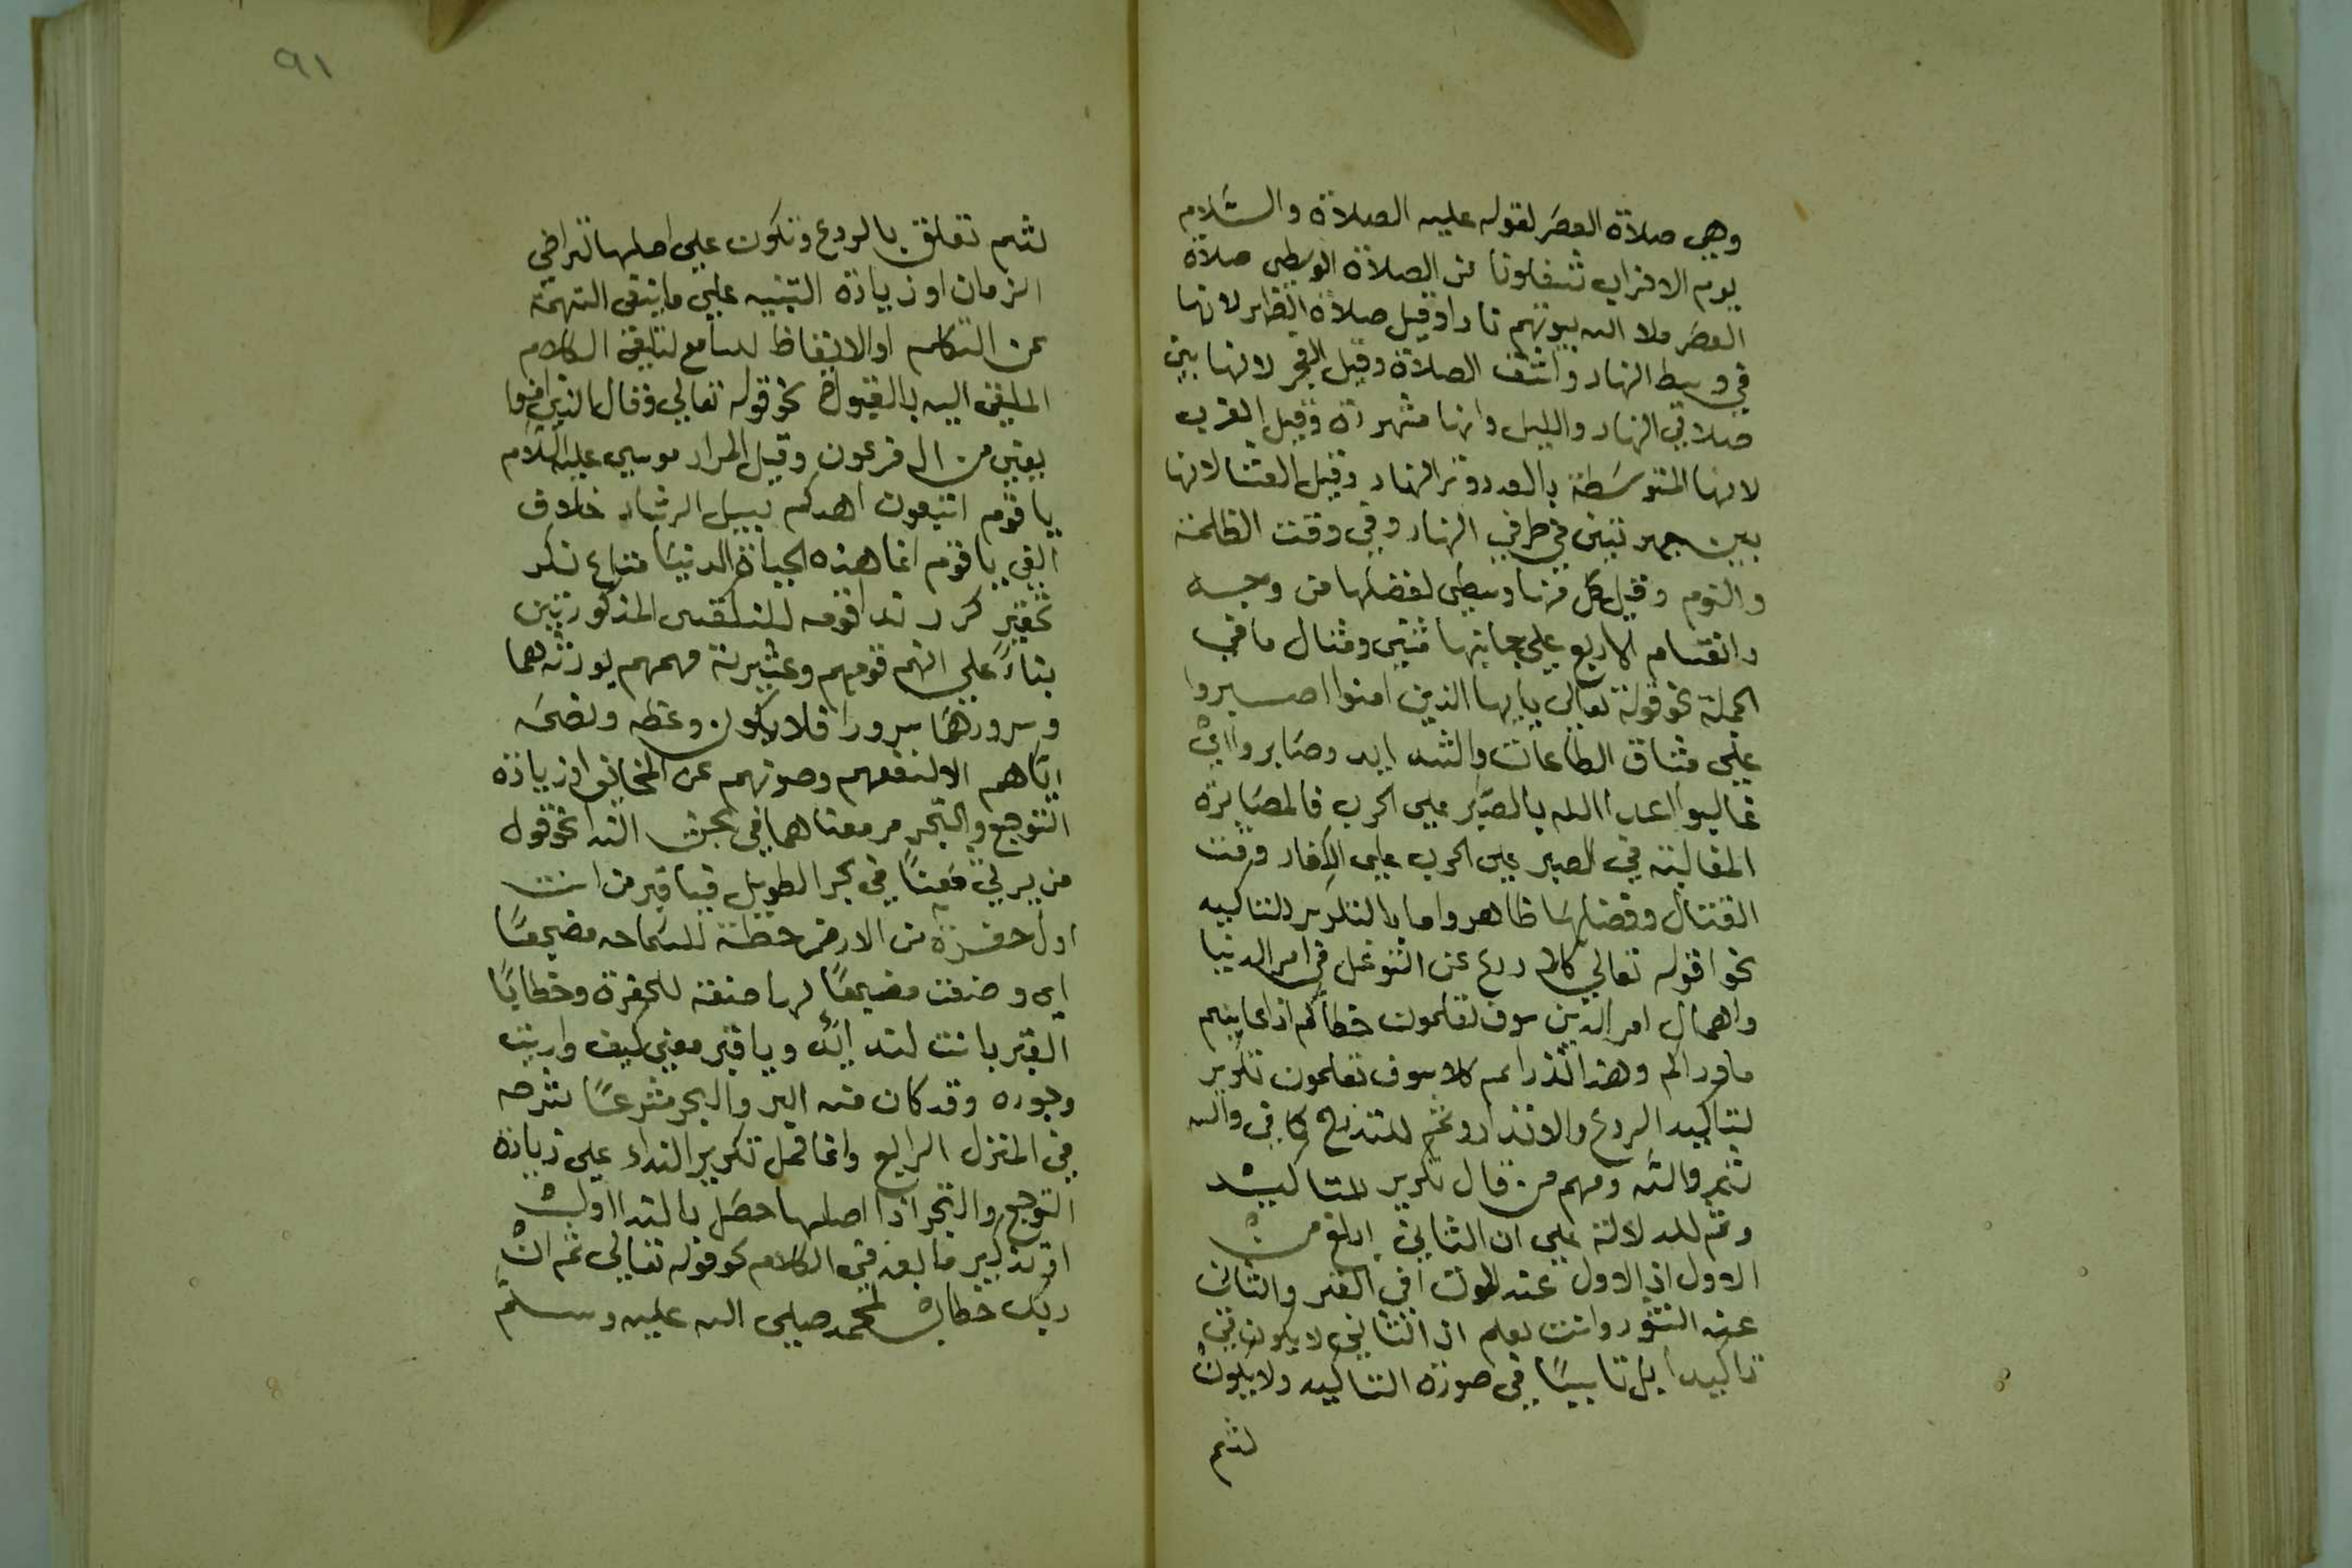 وهي صلاة العصر لقوله عليه الصلاة والسلام
يوم الاحزاب شغلونا عن الصلاة الوسطى صلاة
العصر ملا الله بيوتهم نارا وقيل صلاة الظهر لانها
في وسط النهار واشق الصلاة وقيل الفجر لانها بين
صلاتي النهار والليل وانها مشهودة وقيل المغرب
لانها المتوسطة بالعدد وتر النهار وقيل العشا لانها
بين جهريتين في طرفي النهار وفي وقت الظلمة
والنوم وقيل كل منها وسطى لفضلها من وجه
وانقسام الاربع على جانبيها ثنتين ومثال ما في
الجملة نحو قوله تعالى يايها الذين امنوا اصبروا
على مشاق الطاعات والشدايد وصابروا اي
غالبوا اعدا الله بالصبر على الحرب فالمصابرة
المغالبة في الصبر على الحرب على الكفار وقت
القتال وفضلها ظاهر واما بالتكرير للتاكيد
نحو قوله تعالى كلا ردع عن التوغل في امر الدنيا
واهمال امر الدين سوف تعلمون خطاكم اذا عاينتم
ماوراكم وهذا انذار ثم كلا سوف تعلمون تكرير
لتاكيد الردع والانذار وثم للتدرج كما في والله
ثم والله ومنهم من قال تكرير للتاكيد
وثم للدلالة على ان الثاني ابلغ من
الاول اذ الاول عند الموت او في القبر والثاني
عند النشور وانت تعلم ان الثاني لا يكون
تاكيدا بل تاسيسا في صورة التاكيد ولا يكون
لثم
٩١
لثم تعلق بالردع وتكون على اصلها لتراخي
الزمان او زيادة التنبيه على ما ينفي التهمة
عن التكلم او الايقاظ للسامع لتلقي الكلام
الملقى اليه بالقبول نحو قوله تعالى وقال الذي امن
يعني من ال فرعون وقيل المراد موسى عليه السلام
يا قوم اتبعون اهدكم سبيل الرشاد خلاف
الغي يا قوم انما هذه الحياة الدنيا متاع نكر
تحقير كرر ندا قومه للنكتتين المذكورتين
بناء على انهم قومهم وعشيرته فهمهم يورثه هما
وسرورها سرورا فلا يكون وعظه ونصحه
اياهم الا لنفعهم وصونهم عن المخاوف او زيادة
التوجع والتحسر مر معناهما في بحث الندا نحو قول
من يرثي معنا في بحر الطويل فيا قبر معن انت
اول حفرة من الارض خطت للسماحه مضجعا
اي وضعت مضجعا لها صفة للحفرة وخطابا
القبر بانت لتدانه ويا قبر معن كيف واريت
وجوده وقد كان منه البر والبحر مترعا شرحه
في المنزل الرابع وانما حمل تكرير النداء على زيادة
التوجع والتحسر اذ اصلهما حصل بالندا الاول
او تذكير ما بعد في الكلام نحو قوله تعالى ثم ان
ربك خطاب لمحمد صلى الله عليه وسلم